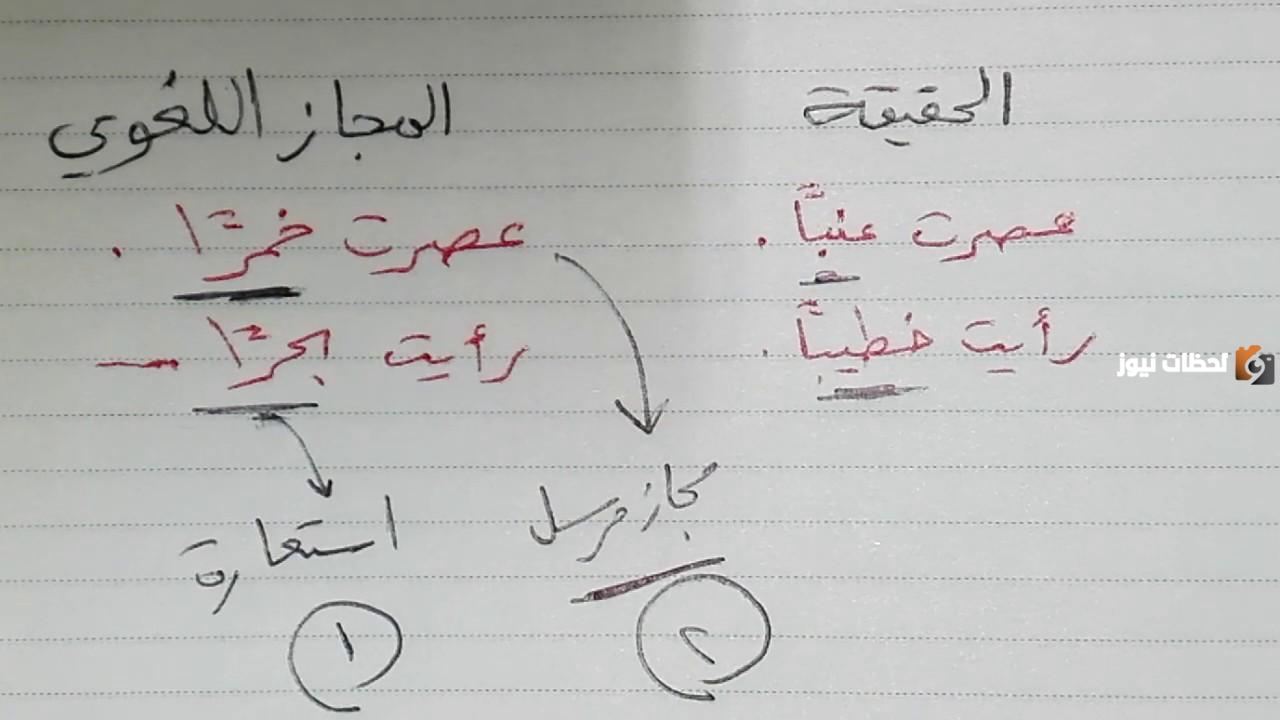 الحقيقة
عصرت عنبًا .
رأيت خطيبًا .
المجاز اللغوي
عصرت خمرًا .
رأيت بحرًا —
مجاز مرسل
٢
استعارة
١
لحظات نيوز